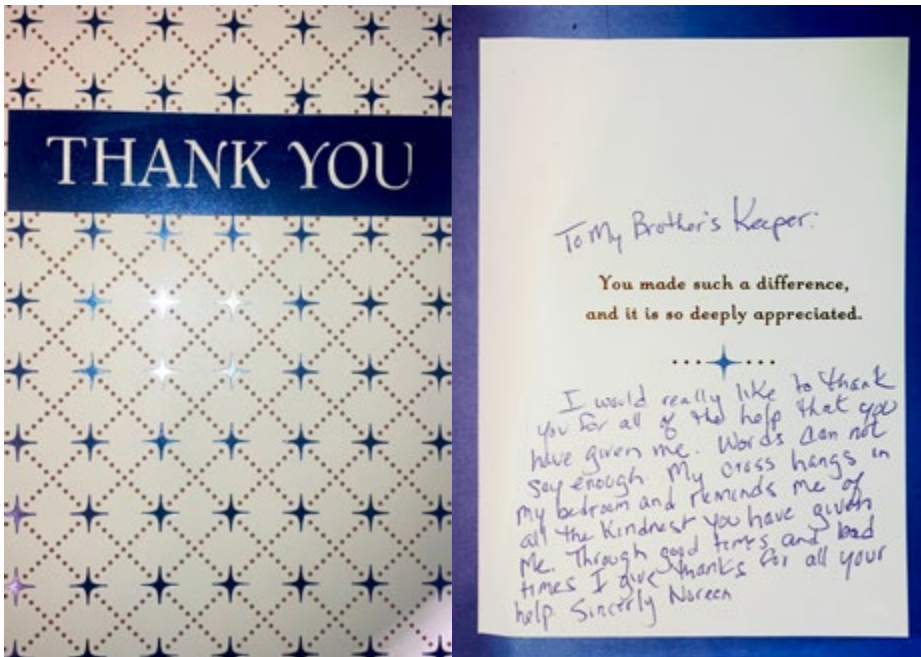 THANK YOU
To My Brother's Keeper:
You made such a difference,
and it is so deeply appreciated.
I would really like to thank
you for all of the help that you
have given me. Words can not
say enough. My cross hangs in
my bedroom and reminds me of
all the kindnest you have given
me. Through good times and bad
times I give thanks for all your
help Sincerly Noreen